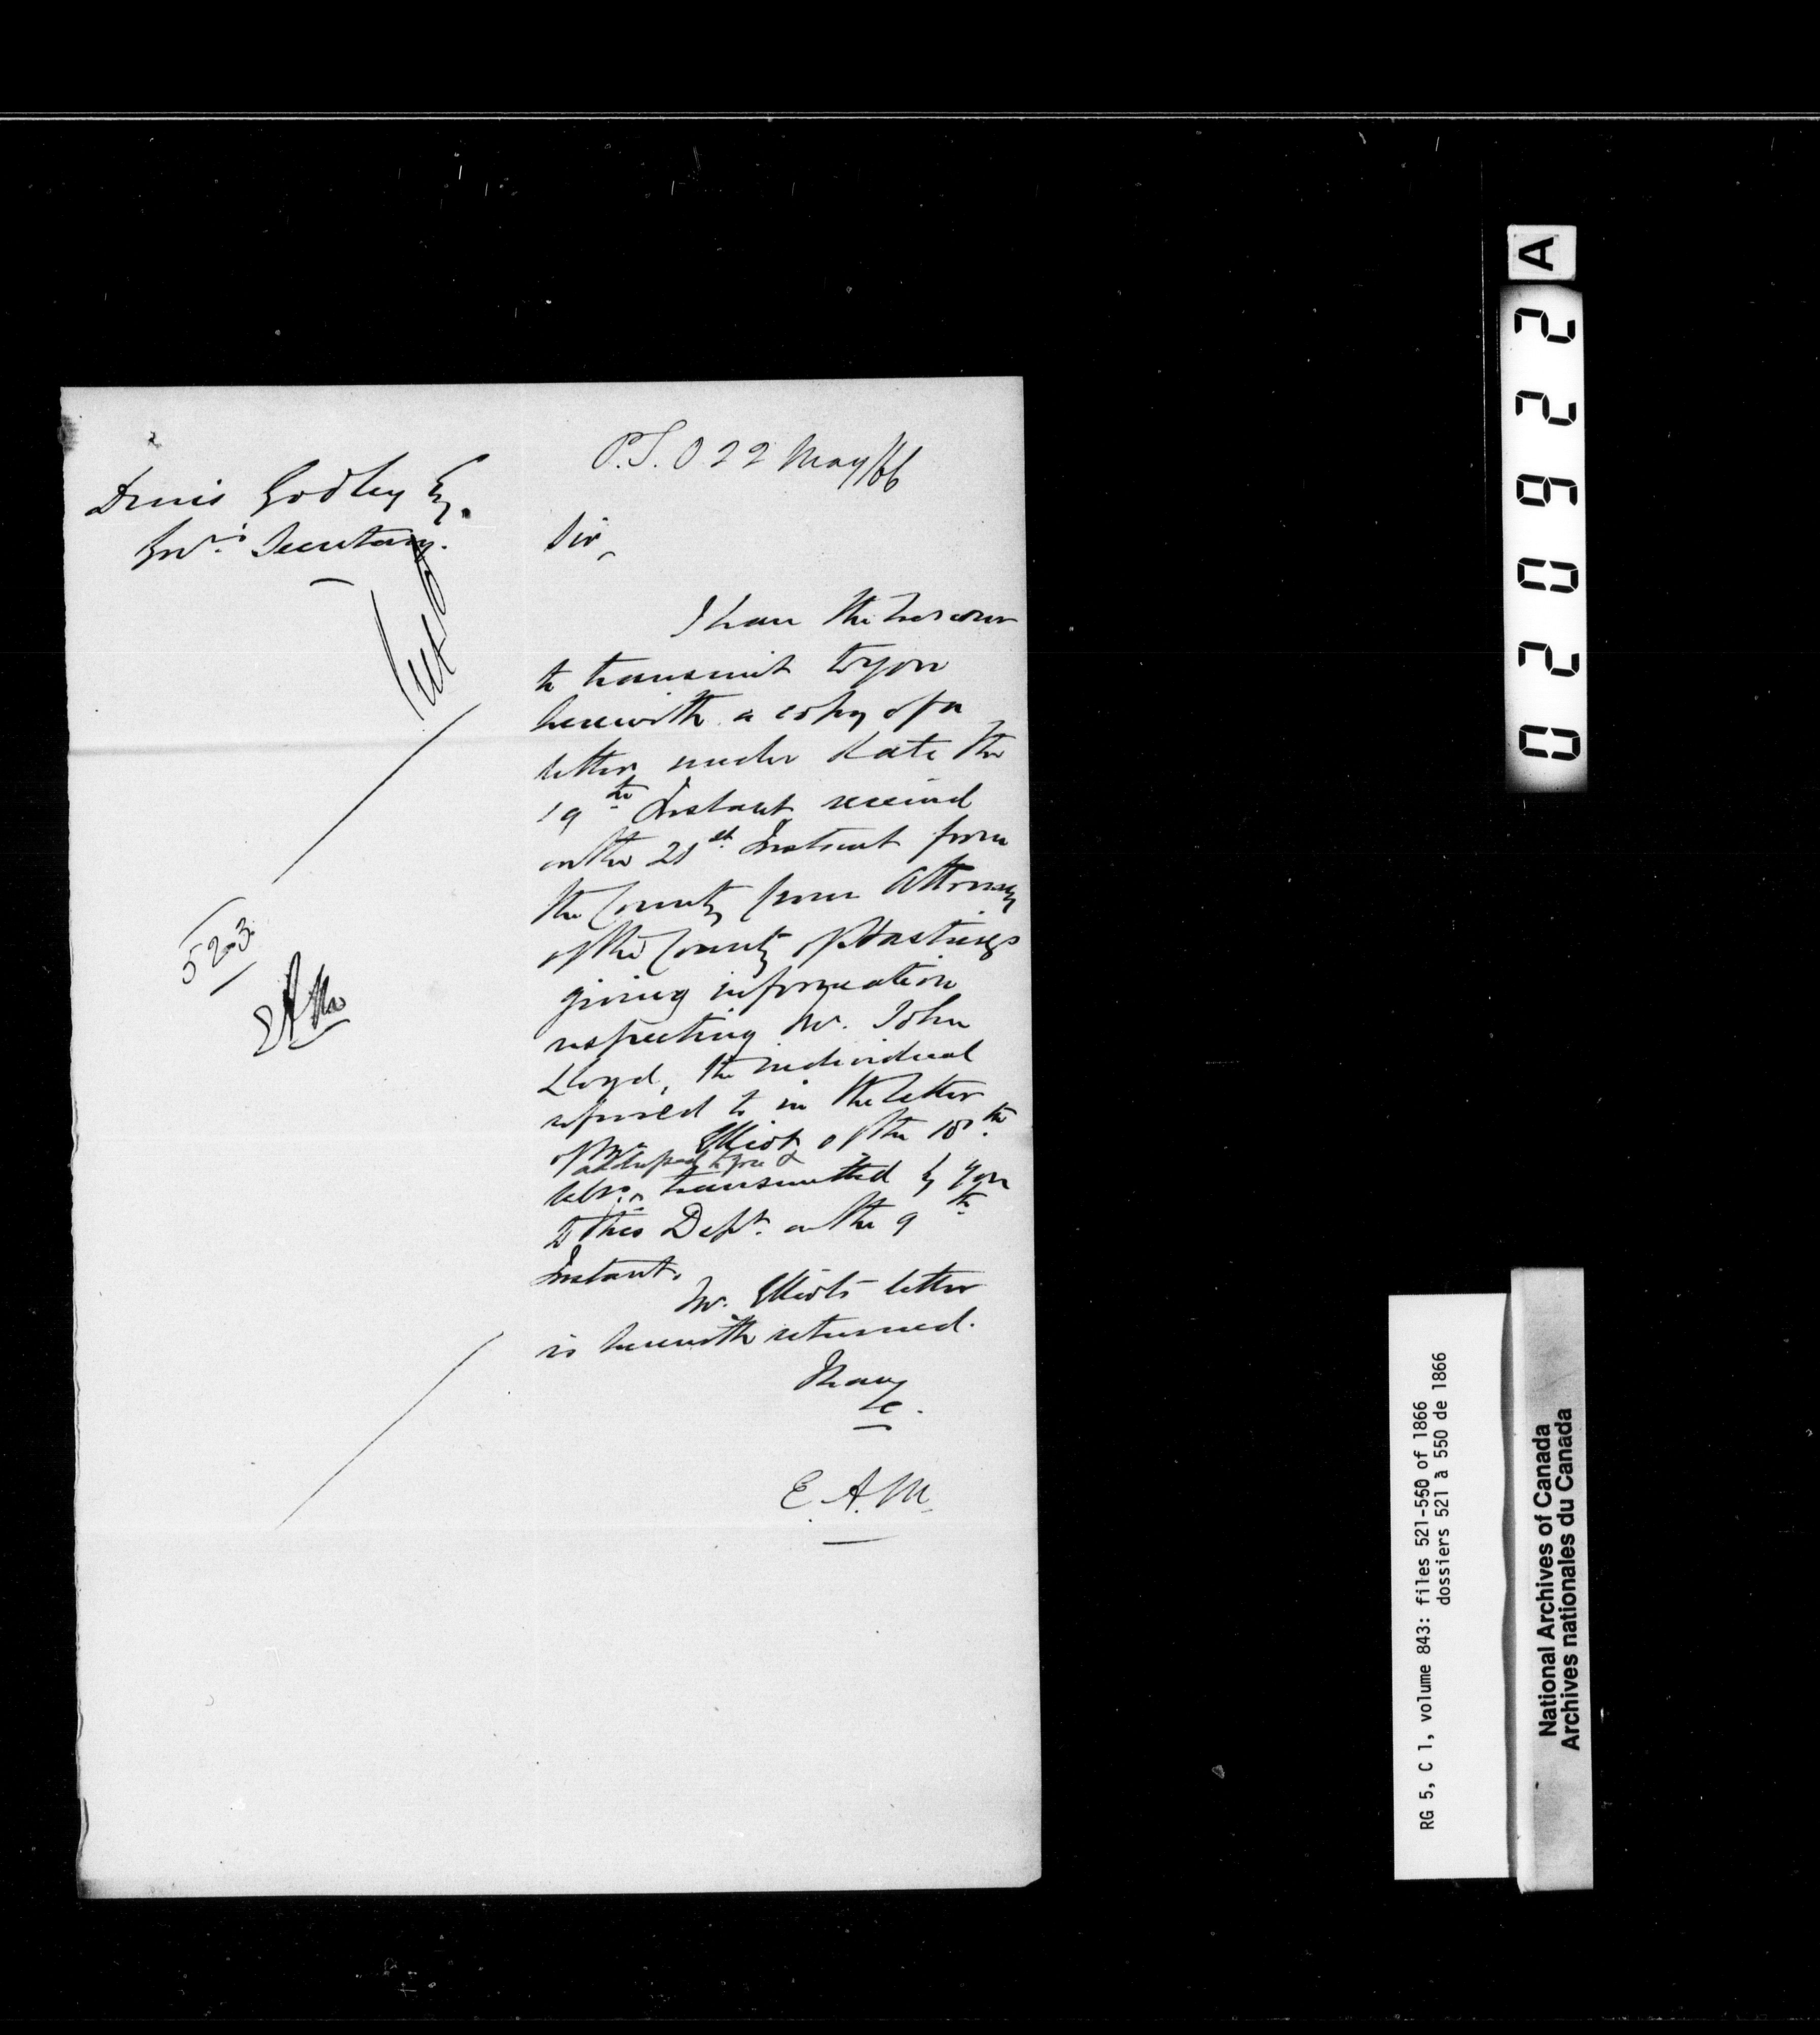 P.S.O 22 May/66
Denis Godley Esq.
Govr's Secretary.
Sir,
I have the honour
to transmit to you
herewith a copy of a
letter under date the
19th Instant received
on the 21st Instant from
the County Crown Attorney
of the County of Hastings
giving information
respecting Mr. John
Lloyd, the individual
referred to in the letter
of Mr Elliot of the 18th
addressed to you &
transmitted by you
to this Dept. on the 9th
Instant.
Mr. Elliot's letter
is herewith returned.
I have
&c.
E.A.M.
523
EAM
A
020922
RG 5, C 1, volume 843: files 521-550 of 1866
dossiers 521 à 550 de 1866
National Archives of Canada
Archives nationales du Canada